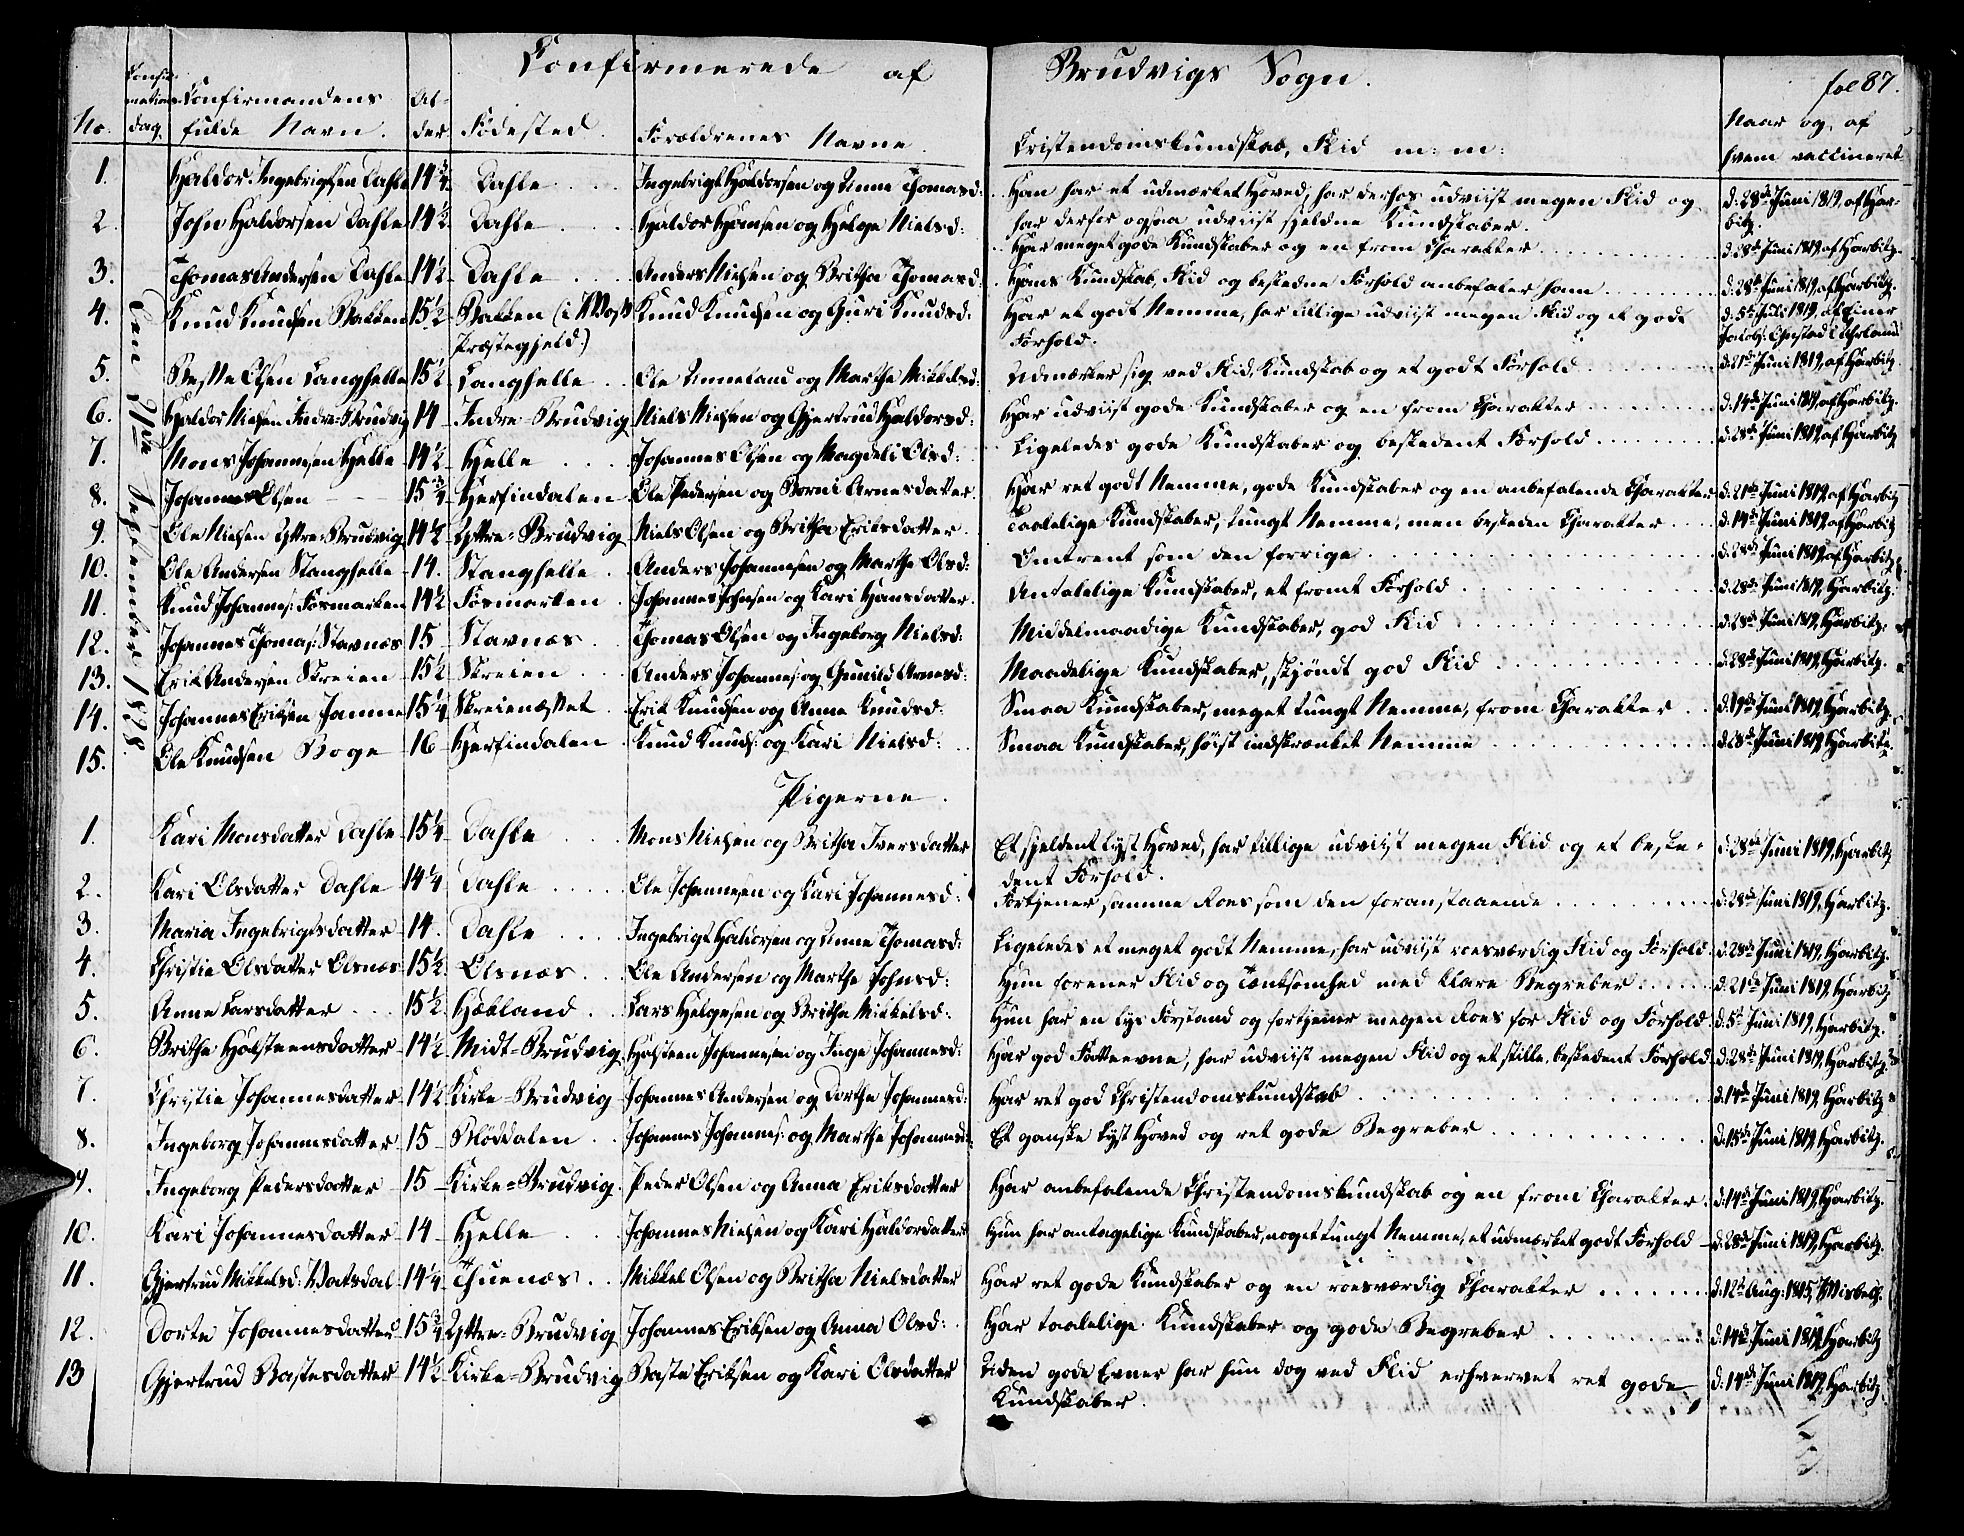 Confirmerede af Brudvigs Sogn.
fol 87.
No.
Confir-
mations-
dag.
Confirmandens
fulde Navn.
Al-
der
Fødested.
Forældrenes Navne.
Kristendomskundskab, Flid m: m:
Naar og af
hvem vaccineret
Den 21de September 1828.
1. Haldor Ingebrigtsen Dahle 14 3/4 Dahle Ingebrigt Haldorsen og Anne Thomasd: Han har et udmærket Hoved, har derhos udviist megen Flid og d: 28de Juni 1819, af Har-
har derfor ogsaa udviist sjeldne Kundskaber. bitz.
2. John Haldorsen Dahle 14 1/2 Dahle Haldor Hansen og Helge Nielsd: Har meget gode Kundskaber og en from Charakter d: 28de Juni 1819, af Harbitz.
3. Thomas Andersen Dahle 14 1/2 Dahle Anders Nielsen og Britha Thomasd: Hans Kundskab, Flid og beskedne Forhold anbefaler ham d: 28de Juni 1819, af Harbitz.
4. Knud Knudsen Bakken 15 1/2 Bakken (i Woss Knud Knudsen og Guri Knudsd: Har et godt Nemme, har tillige udviist megen Flid og et godt d: 5te Juli 1819, af Einer
Præstegjeld.) Forhold. Jacobs:
5. Beste Olsen Langhelle 15 1/2 Langhelle Ole Anneland og Marthe Mikkelsd: Udmærker sig ved Flid, Kundskab og et godt Forhold d: 21de Juni 1819, af Harbitz.
6. Haldor Nielsen Indre-Brudvig 14 Indre-Brudvig Niels Nielsen og Gjertrud Haldorsd: Har udviist gode Kundskaber og en from Charakter d: 14de Juni 1819, af Harbitz.
7. Mons Johannesen Helle 14 1/2 Helle Johannes Olsen og Magdeli Olsd: Ligeledes gode Kundskaber og beskedent Forhold d: 28de Juni 1819, af Harbitz
8. Johannes Olsen 15 3/4 Herfindalen Ole Pedersen og Borni Arnesdatter Har ret godt Nemme, gode Kundskaber og en anbefalende Charakter d: 21de Juni 1819, af Harbitz
9. Ole Nielsen Yttre-Brudvig 14 1/2 Yttre-Brudvig Niels Olsen og Britha Eriksdatter Taalelige Kundskaber, tungt Nemme, men beskeden Charakter d: 14de Juni 1819, af Harbitz
10. Ole Andersen Stanghelle 14. Stanghelle Anders Johannesen og Marthe Olsd: Omtrent som den forrige d: 28de Juni 1819, af Harbitz.
11. Knud Johannes: Fosmarken 14 1/2 Fosmarken Johannes Johnsen og Kari Hansdatter Antalelige Kundskaber, et fromt Forhold d: 28de Juni 1819, Harbitz.
12. Johannes Thomas: Stavnæs 15 Stavnæs Thomas Olsen og Ingeborg Nielsd: Middelmaadige Kundskaber, god Flid d: 28de Juni 1819, Harbitz.
13. Erik Andersen Skreien 15 1/2 Skreien Anders Johannes: og Gunild Arnesd: Maadelige Kundskaber, skjøndt god Flid d: 28de Juni 1819, Harbitz.
14. Johannes Eriksen Jamne 15 1/4 Skreienæsset Erik Knudsen og Anne Knudsd: Smaa Kundskaber, meget tungt Nemme, from Charakter d: 19de Juni 1819, Harbitz.
15. Ole Knudsen Boge 16 Herfindalen Knud Knuds: og Kari Nielsd: Smaa Kundskaber, høist indskrænket Nemme d: 28de Juni 1819, Harbitz.
Pigerne.
1. Kari Monsdatter Dahle 15 1/4 Dahle Mons Nielsen og Britha Iversdatter Et sjeldent lyst Hoved, har tillige udviist megen Flid og et beske- d: 28de Juni 1819, Harbitz
dent Forhold.
2. Kari Olsdatter Dahle 14 1/4 Dahle Ole Johannesen og Kari Johannesd: Fortjener samme Roes som den foranstaaende d: 28de Juni 1819, Harbitz.
3. Maria Ingebrigtsdatter 14. Dahle Ingebrigt Haldorsen og Anne Thomasd: Ligeledes et meget godt Nemme, har udviist roesværdig Flid og Forhold d: 28de Juni 1819, Harbitz.
4. Christie Olsdatter Olsnæs 15 1/2 Olsnæs Ole Andersen og Marthe Johnsd: Hun forener Flid og Tænksomhed med klare Begreber d: 21de Juni 1819, Harbitz
5. Anne Larsdatter 15 1/2 Hækland Lars Helgesen og Britha Mikkelsd: Hun har en lys Forstand og fortjener megen Roes for Flid og Forhold d: 5te Juni 1819, Harbitz.
6. Britha Holsteensdatter 14 1/2 Midt-Brudvig Holsteen Johannesen og Inge Johannesd: Har god Fatteevne, har udviist megen Flid og et stille, beskedent Forhold d: 28de Juni 1819, Harbitz.
7. Christie Johannesdatter 14 1/2 Kirke-Brudvig Johannes Andersen og Dorthe Johannesd: Har ret god Christendomskundskab d: 14de Juni 1819, Harbitz
8. Ingeborg Johannesdatter 15 Bløddalen Johannes Johannes: og Marthe Johannesd: Et ganske lyst Hoved og ret gode Begreber d: 15de Juni 1819, Harbitz.
9. Ingeborg Pedersdatter 15 Kirke-Brudvig Peder Olsen og Anna Eriksdatter Har anbefalende Christendomskundskab og en from Charakter d: 14de Juni 1819, Harbitz.
10. Kari Johannesdatter 14 Helle Johannes Nielsen og Kari Haldorsdatter Hun har antagelige Kundskaber, noget tungt Nemme, et udmærket godt Forhold d: 28de Juni 1819, Harbitz.
11. Gjertrud Mikkelsd: Watsdal 14 1/4 Thuenæs Mikkel Olsen og Britha Nielsdatter Har ret gode Kundskaber og en roesværdig Charakter d: 12te Aug: 1815, Wisbech.
12. Dorte Johannesdatter 15 3/4 Yttre-Brudvig Johannes Eriksen og Anna Olsd: Har taalelige Kundskaber og gode Begreber d: 14de Juni 1819, Harbitz
13 Gjertrud Bastesdatter 14 1/2 Kirke-Brudvig Baste Eriksen og Kari Olsdatter Uden gode Evner har hun dog ved Flid erhvervet ret gode d: 14de Juni 1819, Harbitz.
Kundskaber.